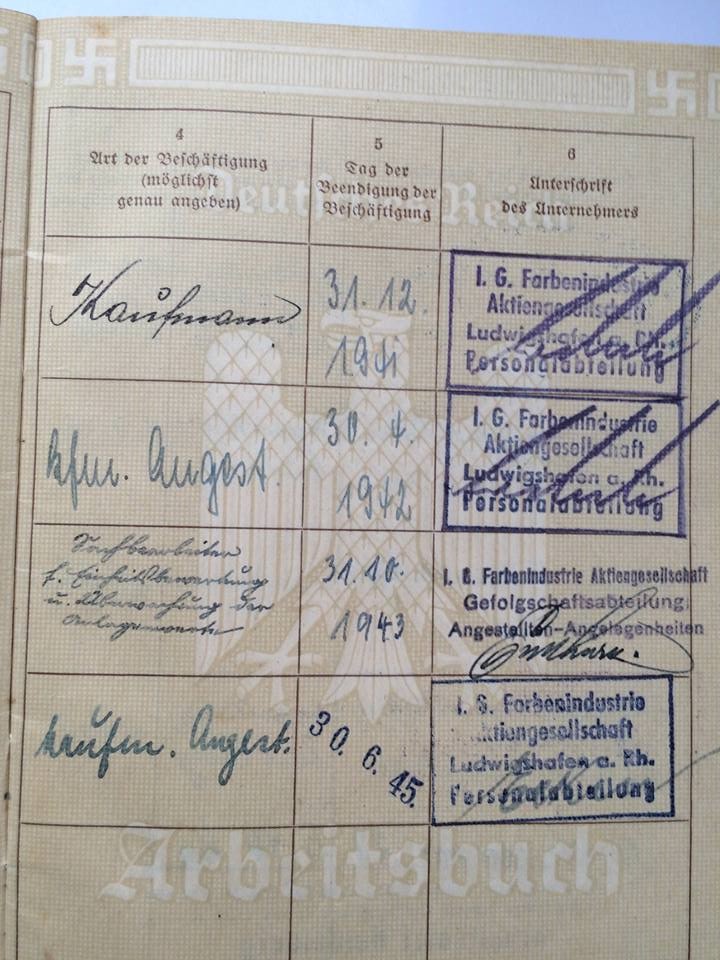 4
Art der Beschäftigung
(möglichst
genau angeben)
5
Tag der
Beendigung der
Beschäftigung
6
Unterschrift
des Unternehmers
Deutsches Reich
Kaufmann
31. 12.
1941
I. G. Farbenindustrie
Aktiengesellschaft
Ludwigshafen a. Rh.
Personalabteilung
kfm. Angest.
30. 4.
1942
I. G. Farbenindustrie
Aktiengesellschaft
Ludwigshafen a. Rh.
Personalabteilung
Sachbearbeiter
f. Einheitsbewertung
u. Überwachung der
31.10.
1943
I. G. Farbenindustrie Aktiengesellschaft
Gefolgschaftsabteilung
Angestellten-Angelegenheiten
kaufm. Angest.
30. 6. 45.
I. G. Farbenindustrie
Aktiengesellschaft
Ludwigshafen a. Rh.
Personalabteilung
Arbeitsbuch